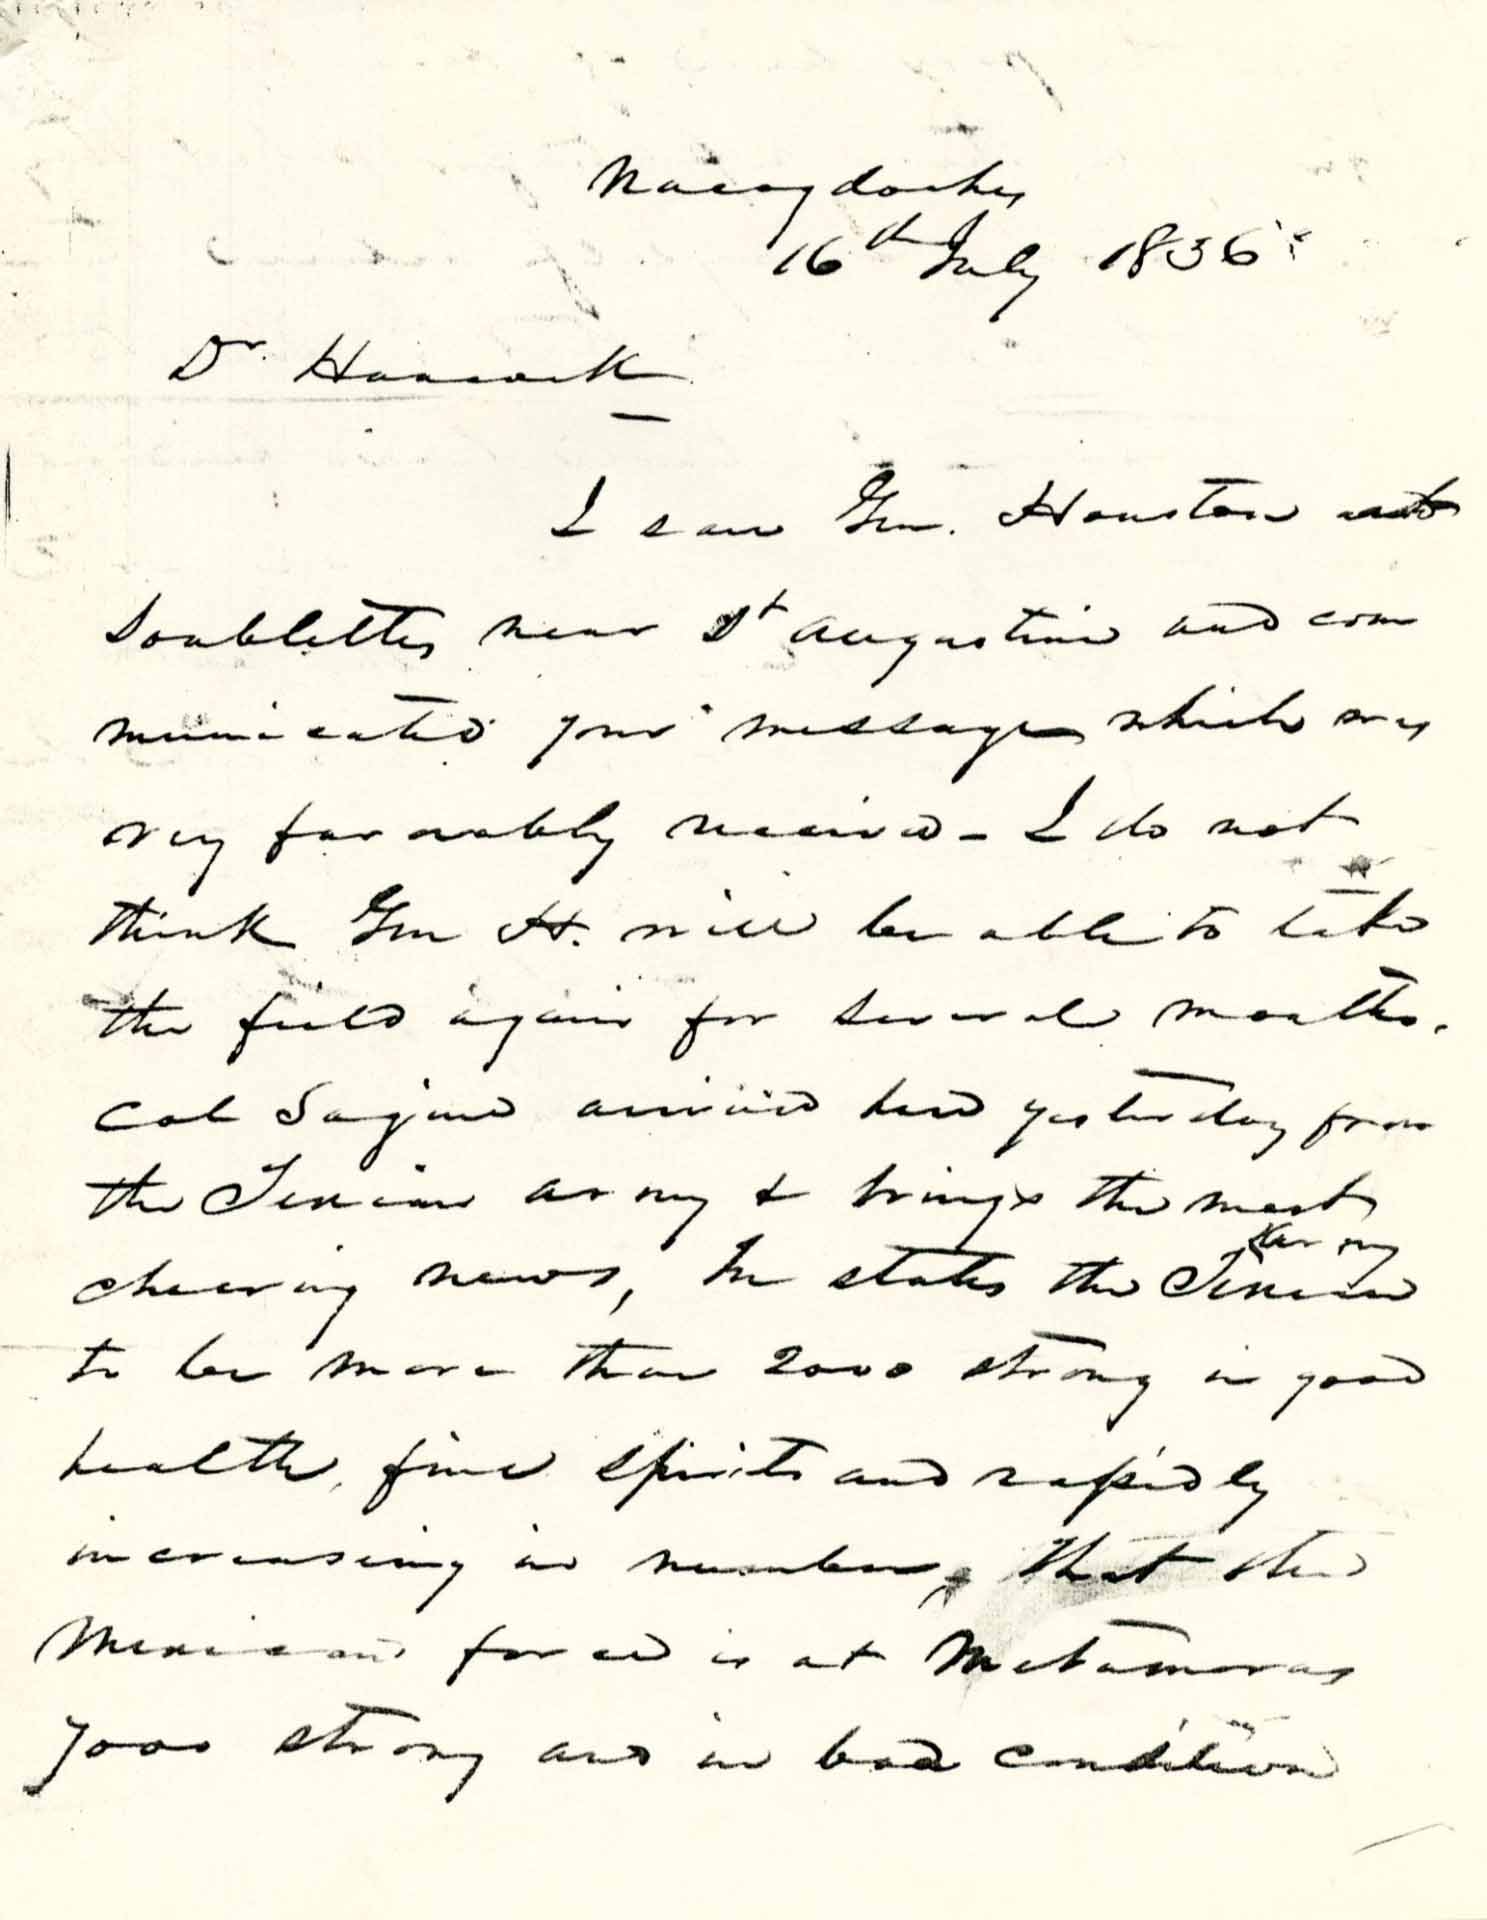 Nacogdoches
16th July 1836
Dr. Hancock
I saw Gen. Houston at
Doublettes near St Augustine and com
municated your message which was
very favorably received - I do not
think Gen H. will be able to take
the field again for several months.
Col arrived here yesterday from
the Texian army & brings the most
cheering news, he states the Texian army
to be more than 2000 strong in good
health, fine spirits and rapidly
increasing in number, that the
Mexican force is at Metamoras
7000 strong and in bad condition